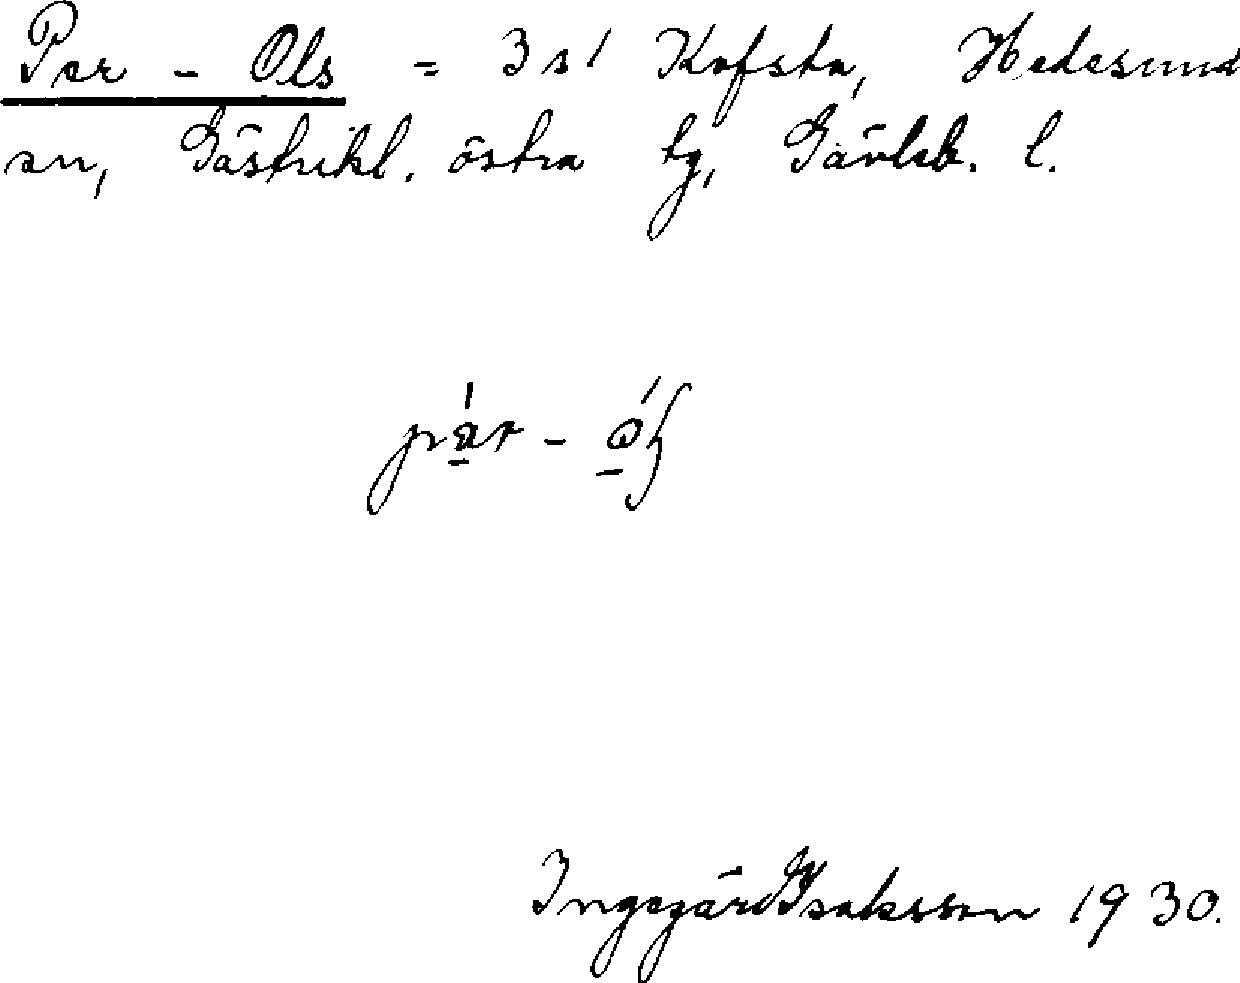 Per - Ols = 3s1 Kofsta, Hedesunda
sn, Gästrikl. östra tg, Gävleb. l.
Ingegärd Isaksson 1930.